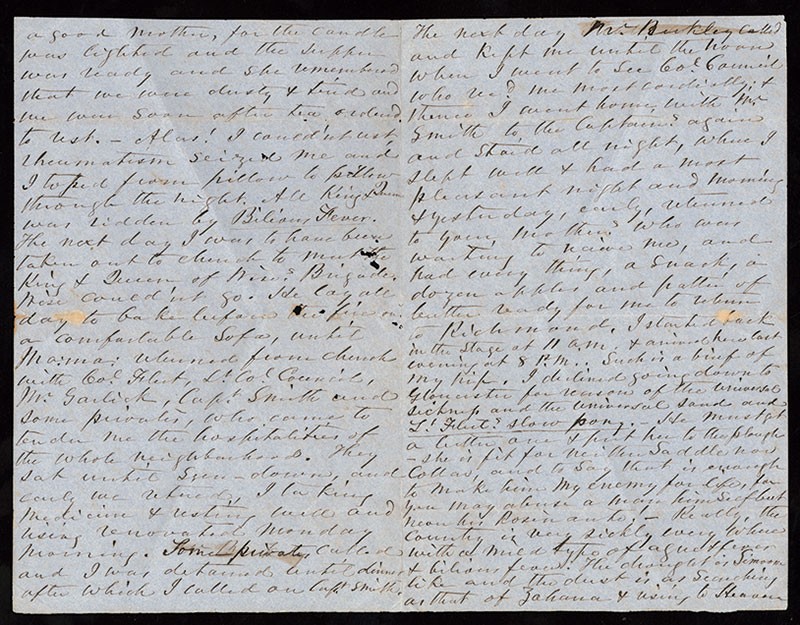 a good mother, for the candle
was lighted and the supper
was ready and she remembered
that we were dusty & tired and
we were soon after tea ordered
to rest. – Alas! I could'nt rest,
rheumatism seized me and
I tossed from pillow to pillow
through the night. All King &
was ridden by Bilious Fever.
The next day I was to have been
taken out to church to meet the
King & Queen of Wise's Brigade.
Wise could'nt go. He lay all
day to bake before the fire on
a comfortable Sofa, until
Mama: returned from church
with Col. Fleet, Lt. Col. Council,
Mr. Garlick, Capt. Smith and
some privates, who came to
tender me the hospitalities of
the whole neighborhood. They
sat until Sun-down, and
early we retired, I taking
medicine & resting well and
rising renovated Monday
morning. Some private, called
and I was detained until dinner
after which I called on Capt. Smith.
The next day Mr. called
and kept me until the noon
when I went to see Col. Council
who rec'd me most cordially, &
thence I went home with Mr.
Smith to the Captain's again
and staid all night, where I
slept well & had a most
pleasant night and morning
& yesterday, early, returned
to your mother's who was
waiting to receive me, and
had every thing, a snack, a
dozen apples and patter of
butter ready for me to return
to Richmond. I started back
in the Stage at 11 a.m. & arrived here last
evening at 8 P.M.. Such is a brief of
my trip. I declined going down to
Gloucester for reason of the universal
sickness and the universal sand and
Lt. Fleet's slow pony. – He must get
a better one & put her to the plough
– she is fit for neither Saddle nor
Collar, and to say that is enough
to make him my enemy for life, for
you may abuse a man himself but
never his Rosinante! – Really the
country is very sickly every where
with a mild type of ague & fever
& bilious fever. The drought is Simoom
like and the dust is as searching
as that of Zahara & rising to Heaven